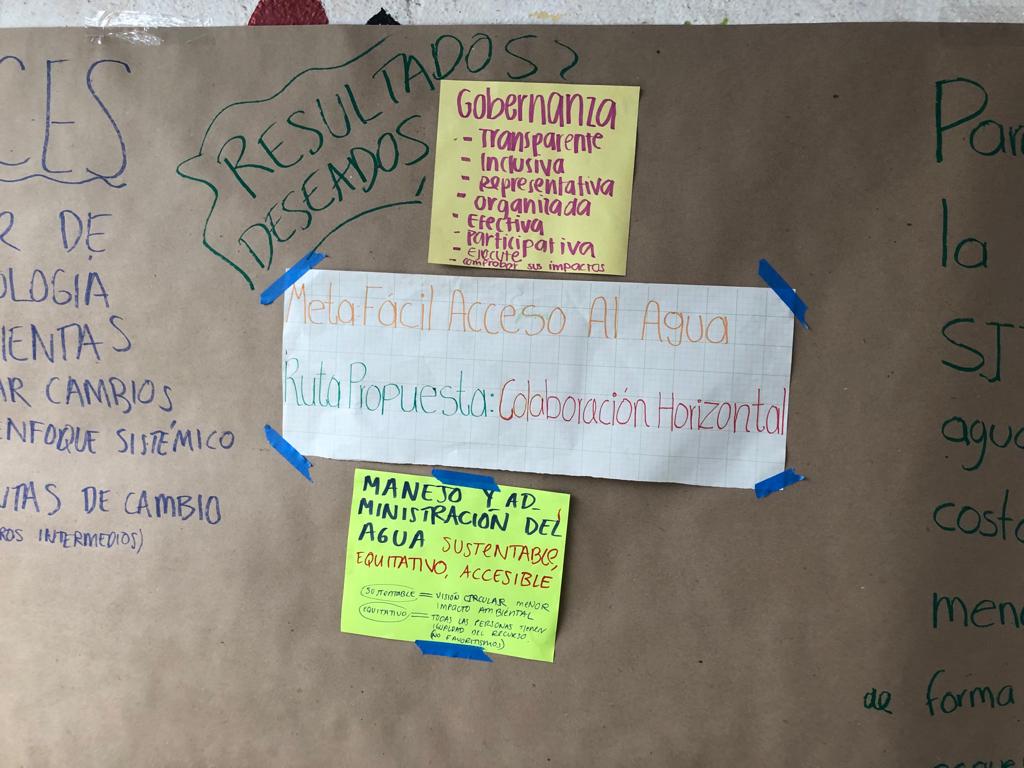 CES
R DE
OLOGIA
IENTAS
AR CAMBIOS
ENFOQUE SISTÉMICO
UTAS DE CAMBIO
ROS INTERMEDIOS)
RESULTADOS
DESEADOS
Gobernanza
- Transparente
- Inclusiva
- Representativa
- Organizada
- Efectiva
- Participativa
- Ejecute
- comprobar sus impactos
Meta Fácil Acceso Al Agua
Ruta Propuesta: Colaboración Horizontal
MANEJO Y AD_
MINISTRACIÓN DEL
AGUA SUSTENTABLE,
EQUITATIVO, ACCESIBLE
SUSTENTABLE = VISIÓN CIRCULAR MENOR
IMPACTO AMBIENTAL
EQUITATIVO = TODAS LAS PERSONAS TIENEN
IGUALDAD DEL RECURSO
(NO FAVORITISMOS)
Par
la
agua
costo
meno
de forma